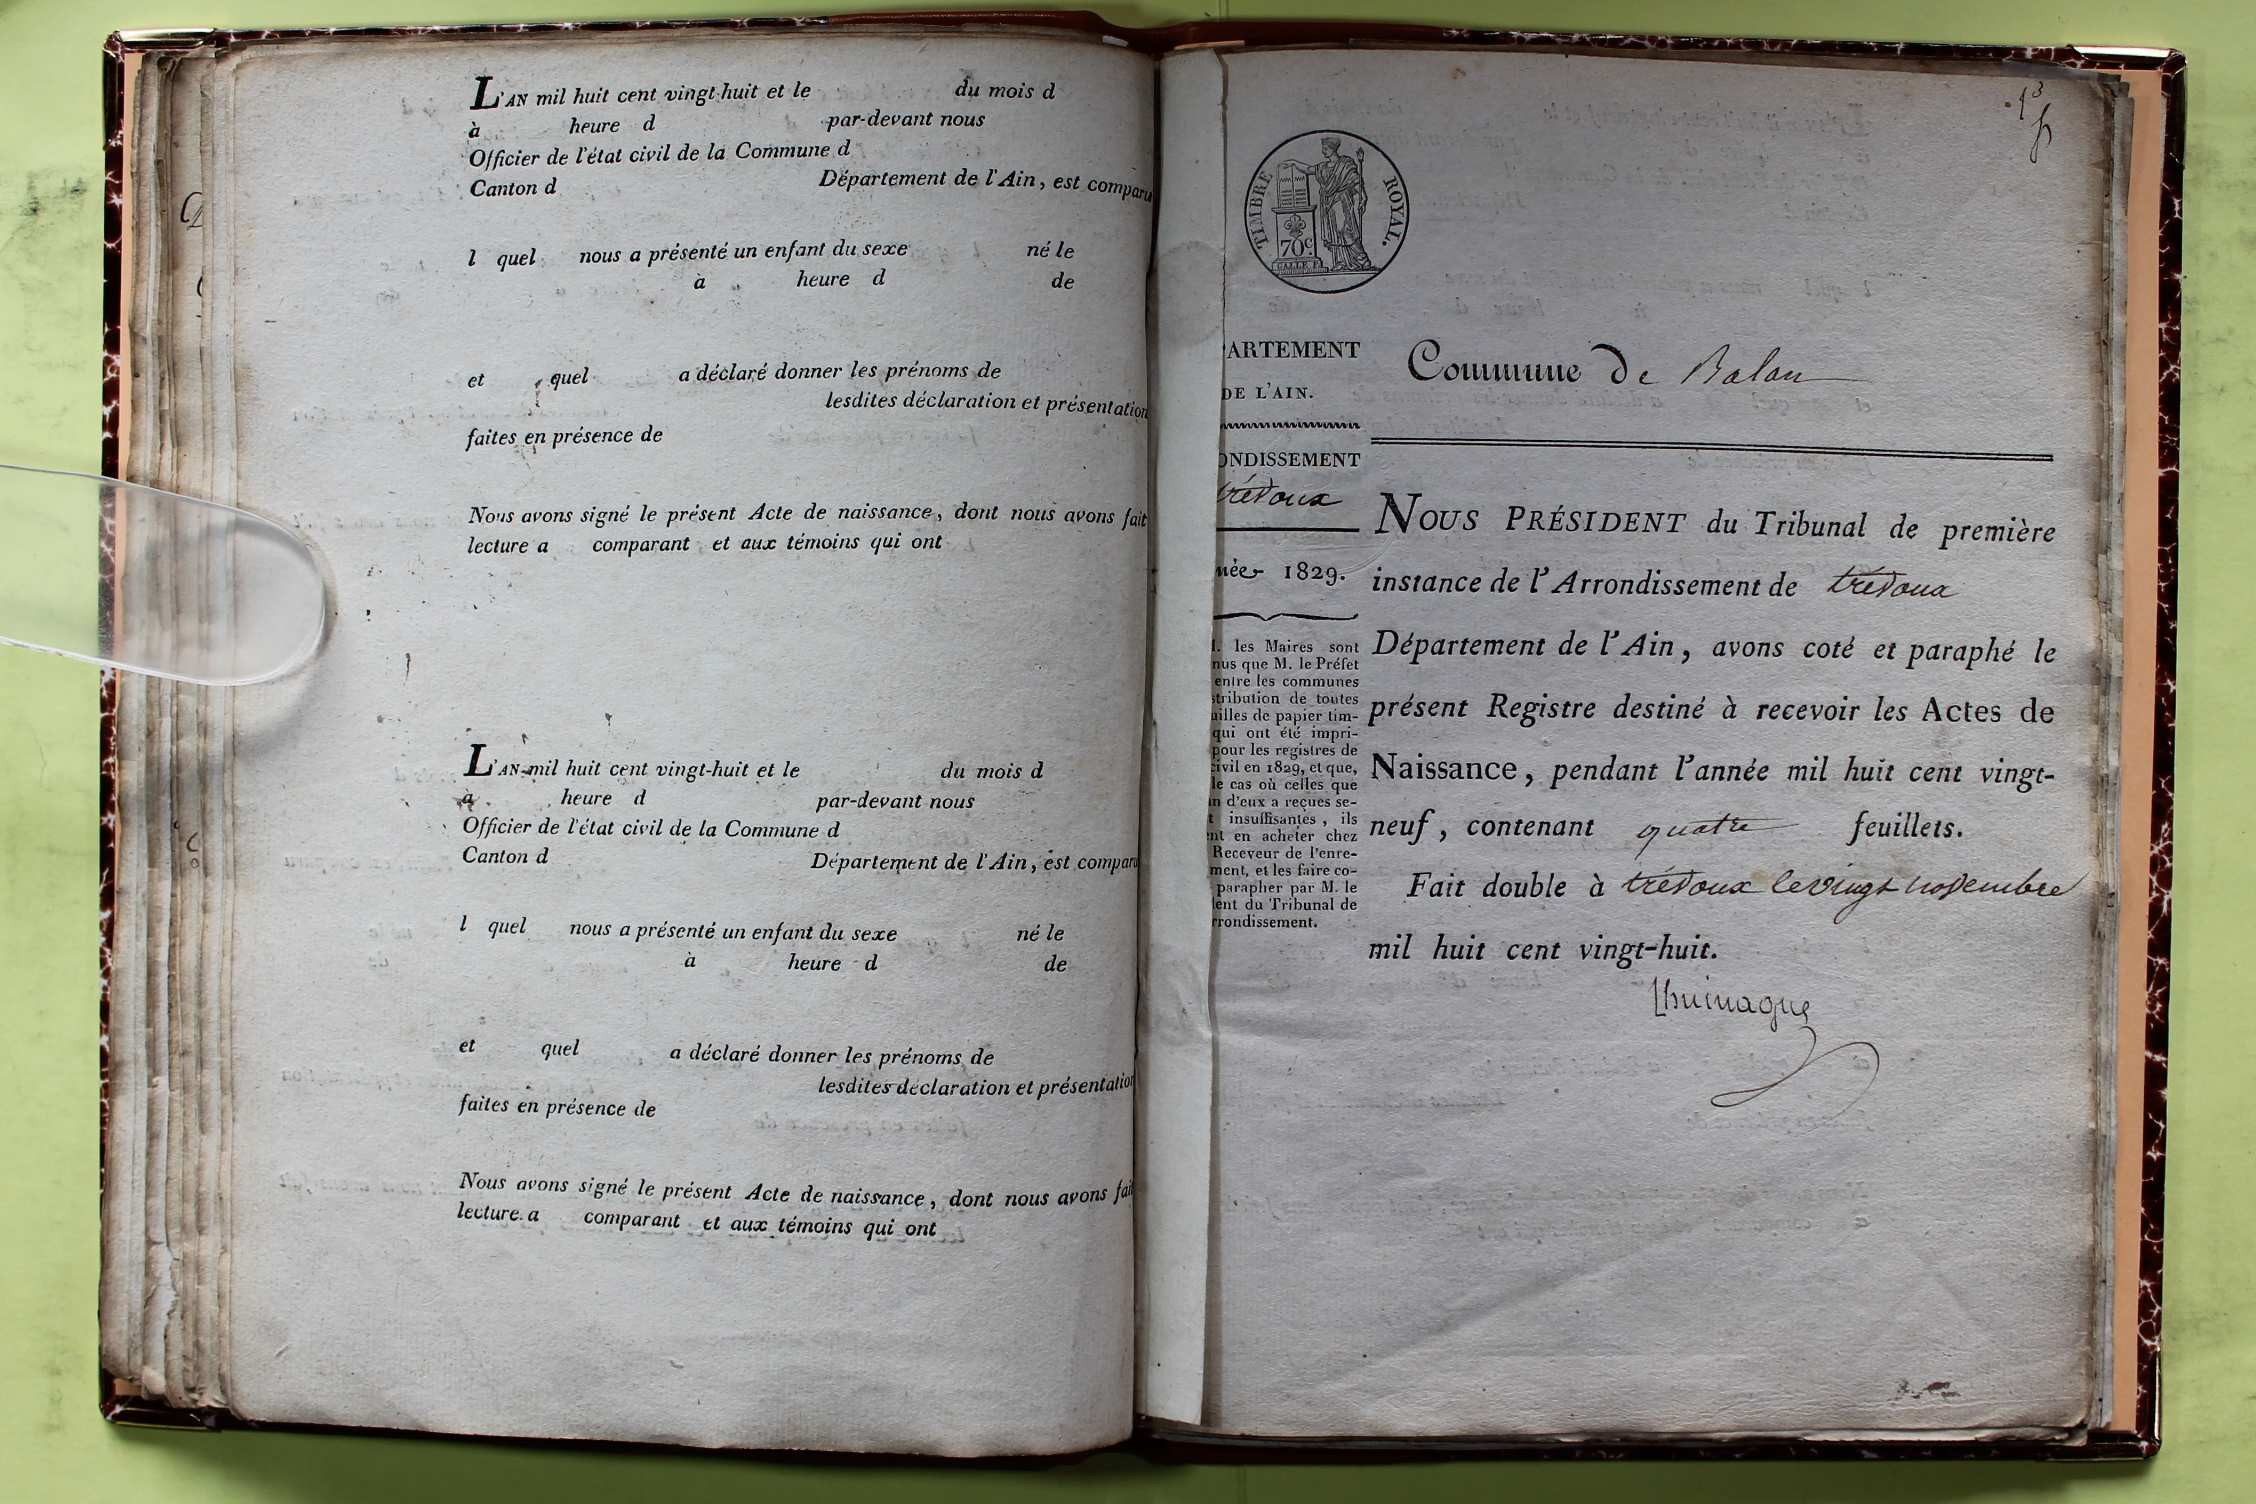 L'AN mil huit cent vingt-huit et le du mois d
à heure d par-devant nous
Officier de l'état civil de la Commune d
Canton d Département de l'Ain, est comparu
l quel nous a présenté un enfant du sexe né le
à heure d de
et quel a déclaré donner les prénoms de
lesdites déclaration et présentation
faites en présence de
Nous avons signé le présent Acte de naissance, dont nous avons fait
lecture a comparant et aux témoins qui ont
L'AN mil huit cent vingt-huit et le du mois d
à heure d par-devant nous
Officier de l'état civil de la Commune d
Canton d Département de l'Ain, est comparu
l quel nous a présenté un enfant du sexe né le
à heure d de
et quel a déclaré donner les prénoms de
lesdites déclaration et présentation
faites en présence de
Nous avons signé le présent Acte de naissance, dont nous avons fait
lecture a comparant et aux témoins qui ont
TIMBRE ROYAL.
70c.
ARTEMENT
DE L'AIN.
ONDISSEMENT
trévoux
née 1829.
les Maires sont
nus que M. le Préfet
entre les communes
stribution de toutes
uilles de papier tim-
qui ont été impri-
pour les registres de
civil en 1829, et que,
le cas où celles que
n d'eux a reçues se-
t insuffisantes, ils
ent en acheter chez
Receveur de l'enre-
ment, et les faire co-
parapher par M. le
dent du Tribunal de
rrondissement.
Commune de Balan
NOUS PRÉSIDENT du Tribunal de première
instance de l'Arrondissement de trévoux
Département de l'Ain, avons coté et paraphé le
présent Registre destiné à recevoir les Actes de
Naissance, pendant l'année mil huit cent vingt-
neuf, contenant quatre feuillets.
Fait double à trévoux le vingt novembre
mil huit cent vingt-huit.